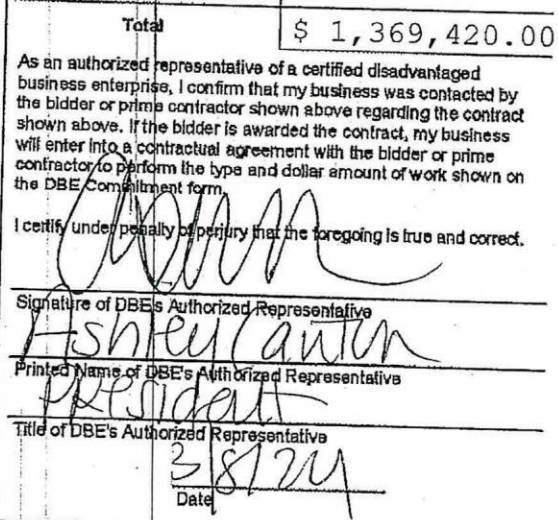 Total $ 1,369,420.00
As an authorized representative of a certified disadvantaged
business enterprise, I confirm that my business was contacted by
the bidder or prime contractor shown above regarding the contract
shown above. If the bidder is awarded the contract, my business
will enter into a contractual agreement with the bidder or prime
contractor to perform the type and dollar amount of work shown on
the DBE Commitment form.
I certify under penalty of perjury that the foregoing is true and correct.
Signature of DBE's Authorized Representative
Ashley Canton
Printed Name of DBE's Authorized Representative
President
Title of DBE's Authorized Representative
3/8/24
Date